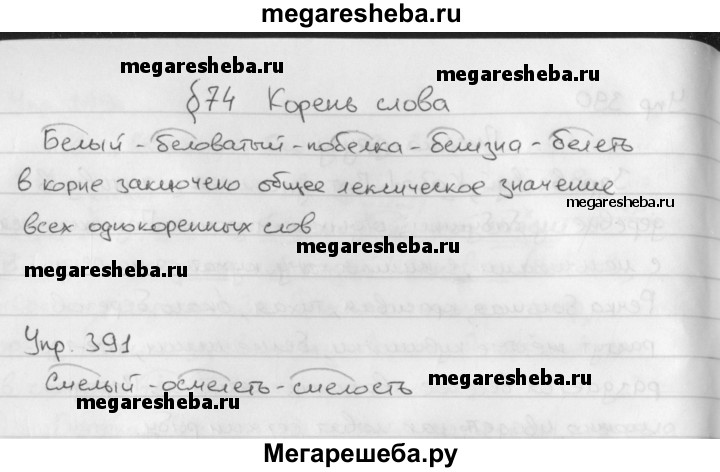 megaresheba.ru
megaresheba.ru
megaresheba.ru
§74 Корень слова
Белый - беловатый - побелка - белизна - белеть
в корне заключено общее лексическое значение
megaresheba.ru
всех однокоренных слов
megaresheba.ru
Упр. 391
Смелый - осмелеть - смелость
megaresheba.ru
megaresheba.ru
Мегарешеба.ру